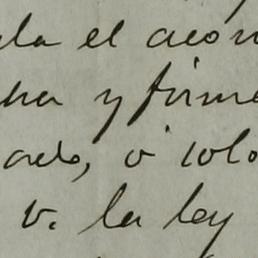 la el acon
y firme
ado, ó solo
v. la ley